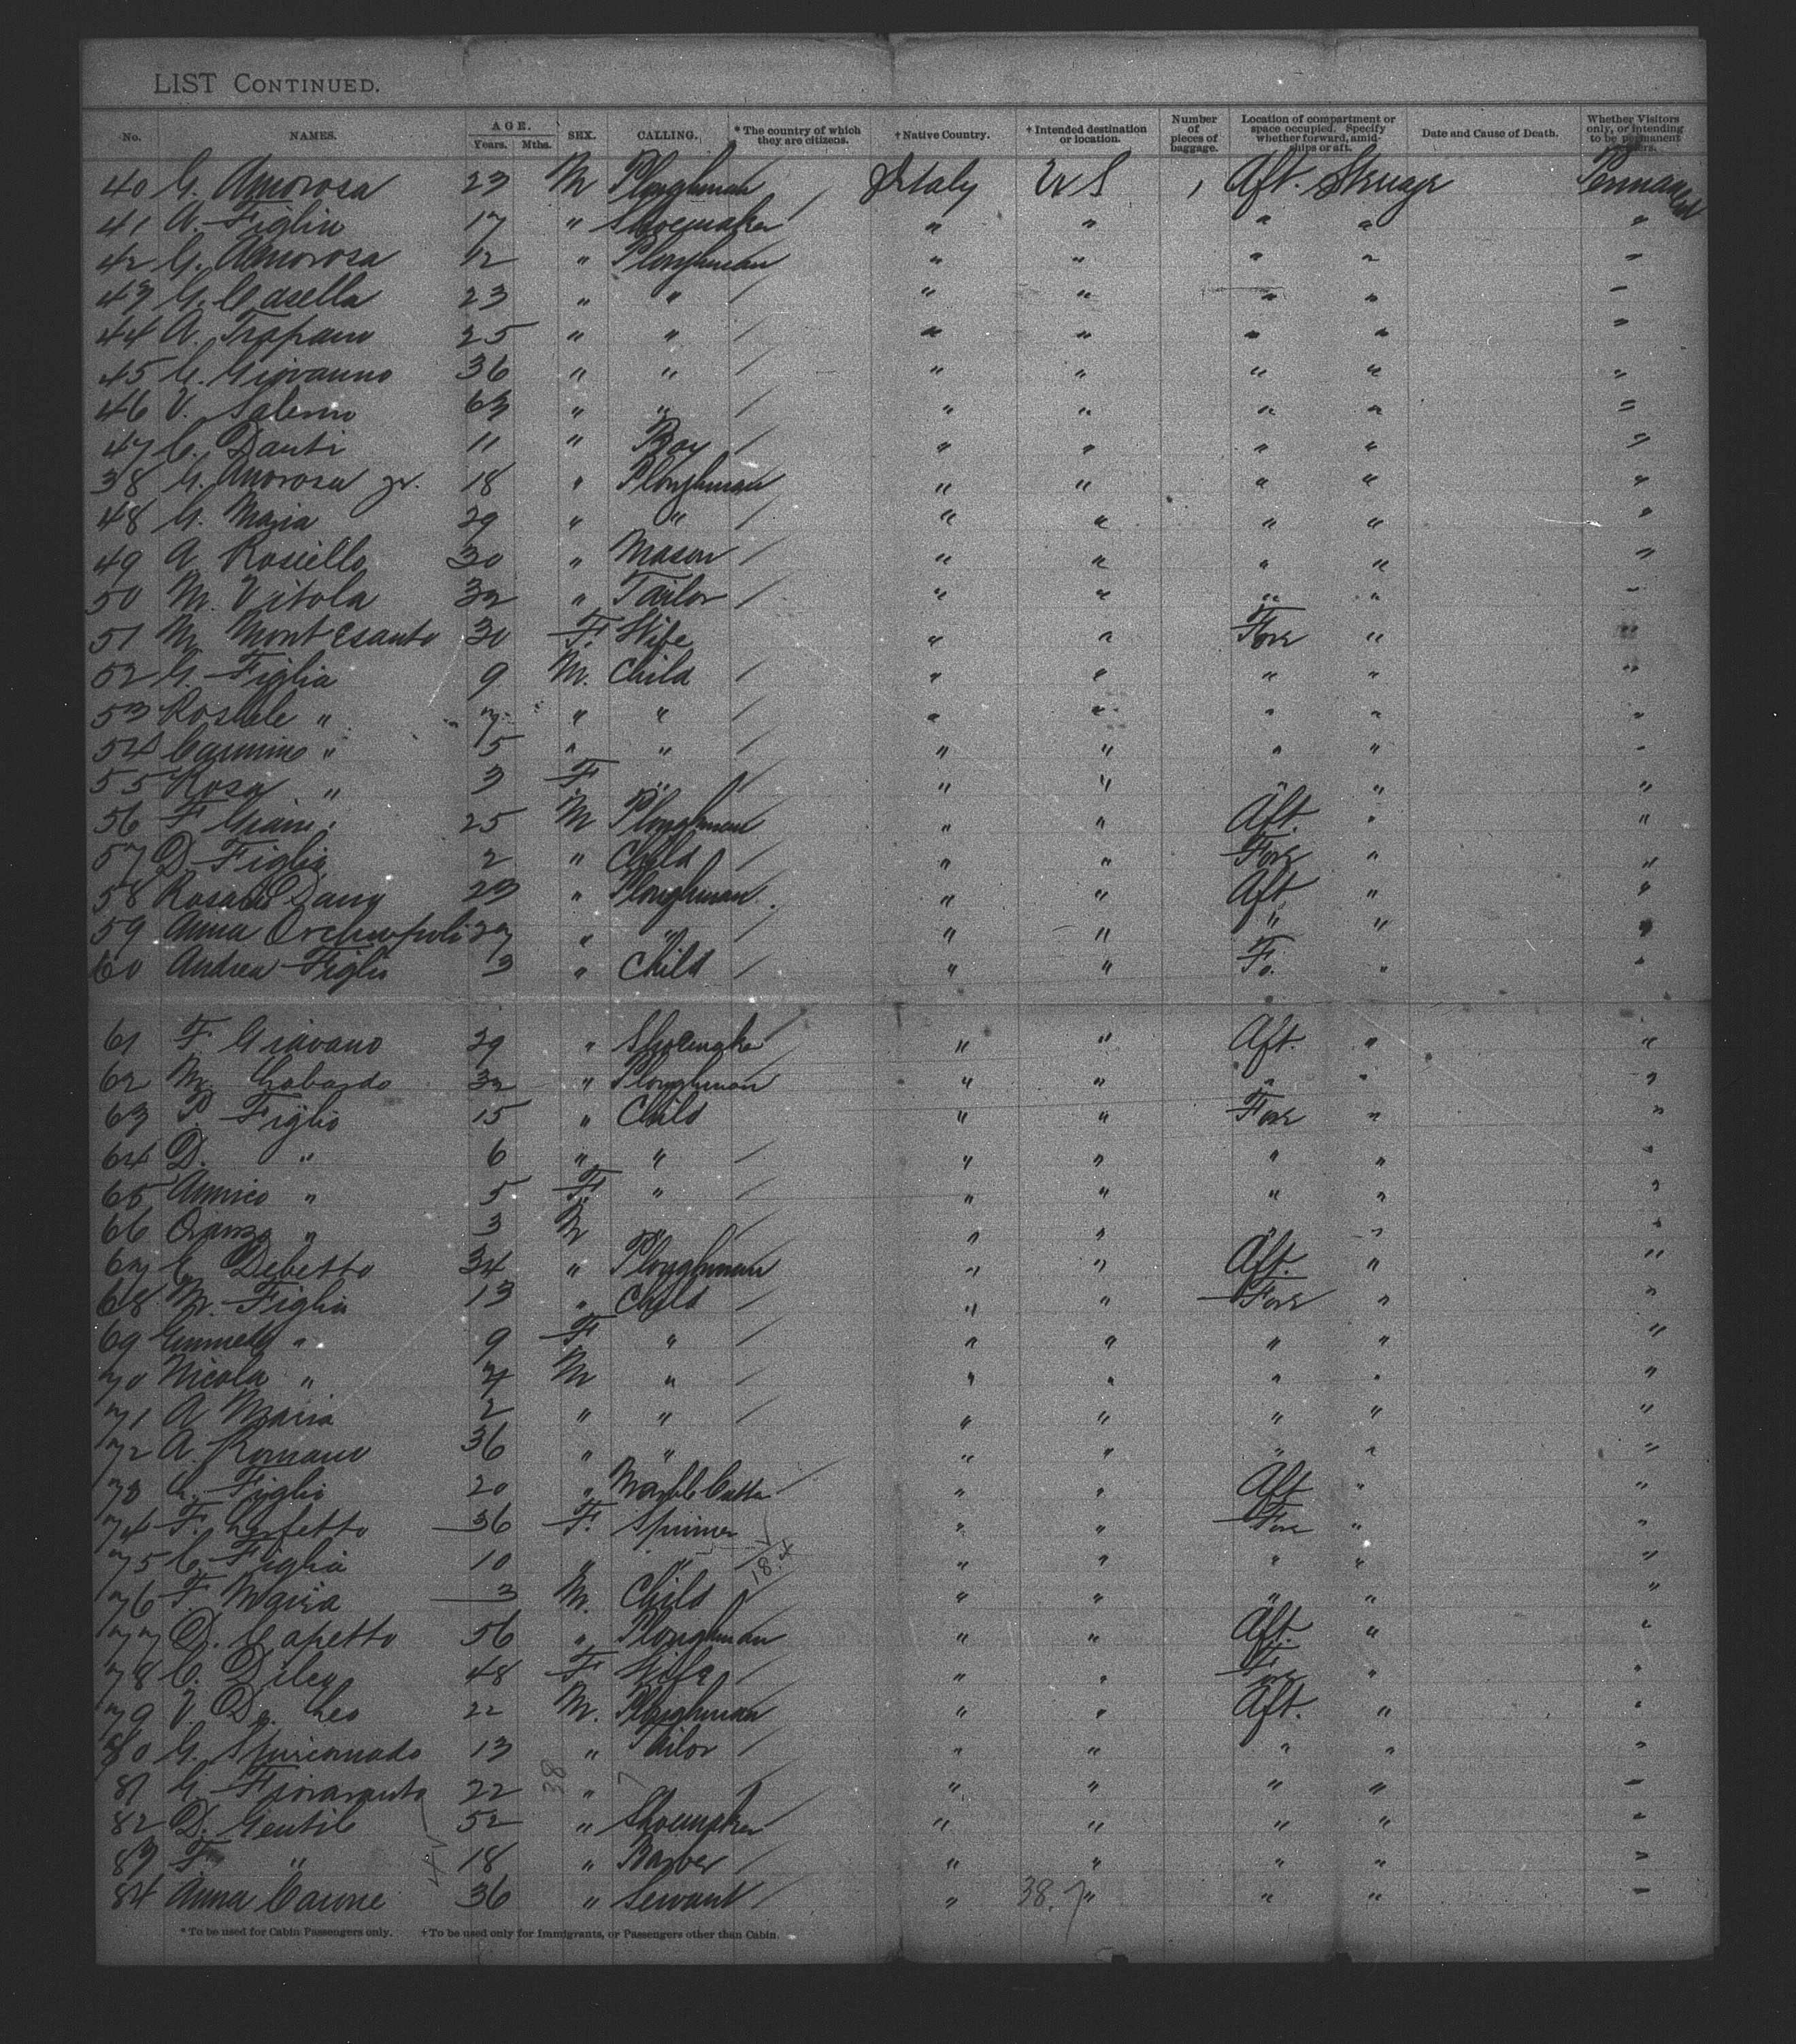 LIST CONTINUED.
No. NAMES. AGE. Years. Mths. SEX. CALLING. * The country of which they are citizens. † Native Country. † Intended destination or location. Number of pieces of baggage. Location of compartment or space occupied. Specify whether forward, amidships or aft. Date and Cause of Death. Whether Visitors only, or intending to be permanent settlers.
40 G. Amorosa 23 M Ploughman / Italy U S 1 Aft. Steerage Permanent
41 A. Figlio 17 " Shoemaker " " " " "
42 G. Amorosa 12 " Ploughman " " " " "
43 G. Casella 23 " " / " " " " "
44 A. Trapano 25 " " / " " " " "
45 G. Giovanno 36 " " / " " " " "
46 V. Salerno 63 " " / " " " " "
47 C. Danti 11 " Boy / " " " " "
38 G. Amorosa jr. 18 " Ploughman " " " " "
48 G. Maria 29 " " / " " " " "
49 A. Rosiello 30 " Mason / " " " " "
50 M. Vitola 32 " Tailor / " " " " "
51 M. Montesanto 30 F. Wife " " Fore " "
52 G. Figlia 9 M. Child / " " " " "
53 " 7 " " / " " " " "
54 Carmino " 5 " " / " " " " "
55 Rosa " 3 F " / " " " " "
56 F 25 M Ploughman " " Aft. " "
57 D. Figlio 2 " Child / " " Fore " "
58 Dany 23 " Ploughman " " Aft. " "
59 Anna 27 " " / " " " " "
60 Andrea Figlio 3 " Child / " " Fo. " "
61 F. Giovano 29 " Shoemaker / " " Aft. " "
62 M. 32 " Ploughman " " " " "
63 P. Figlio 15 " Child " " Fore " "
64 D. " 6 " " / " " " " "
65 " 5 F. " / " " " " "
66 " 3 M " / " " " " "
67 C. Debetto 34 " Ploughman " " Aft. " "
68 M. Figlio 13 " Child / " " Fore " "
69 " 9 F " / " " " " "
70 Nicola " 4 M " / " " " " "
71 A Maria 2 " " / " " " " "
72 A. Romano 36 " " " " " " "
73 Figlio 20 " Marble Cutter / " " Aft " "
74 F. 36 F. Spinner " " Fore " "
75 C. Figlia 10 " " / " " " " "
76 F. Maria 3 M. Child / " " " " "
77 D. Capetto 56 " Ploughman " " Aft. " "
78 C. Dileo 48 F Wife / " " Fore " "
79 V. De Leo 22 M. Ploughman " " Aft. " "
80 G. 13 " Tailor / " " " " "
81 G. 22 " / " " " " "
82 D. Gentile 52 " Shoemaker " " " " "
83 F " 18 " Barber / " " " " "
84 Anna Carone 36 " Servant / " 38.7 " " " "
* To be used for Cabin Passengers only. † To be used only for Immigrants, or Passengers other than Cabin.